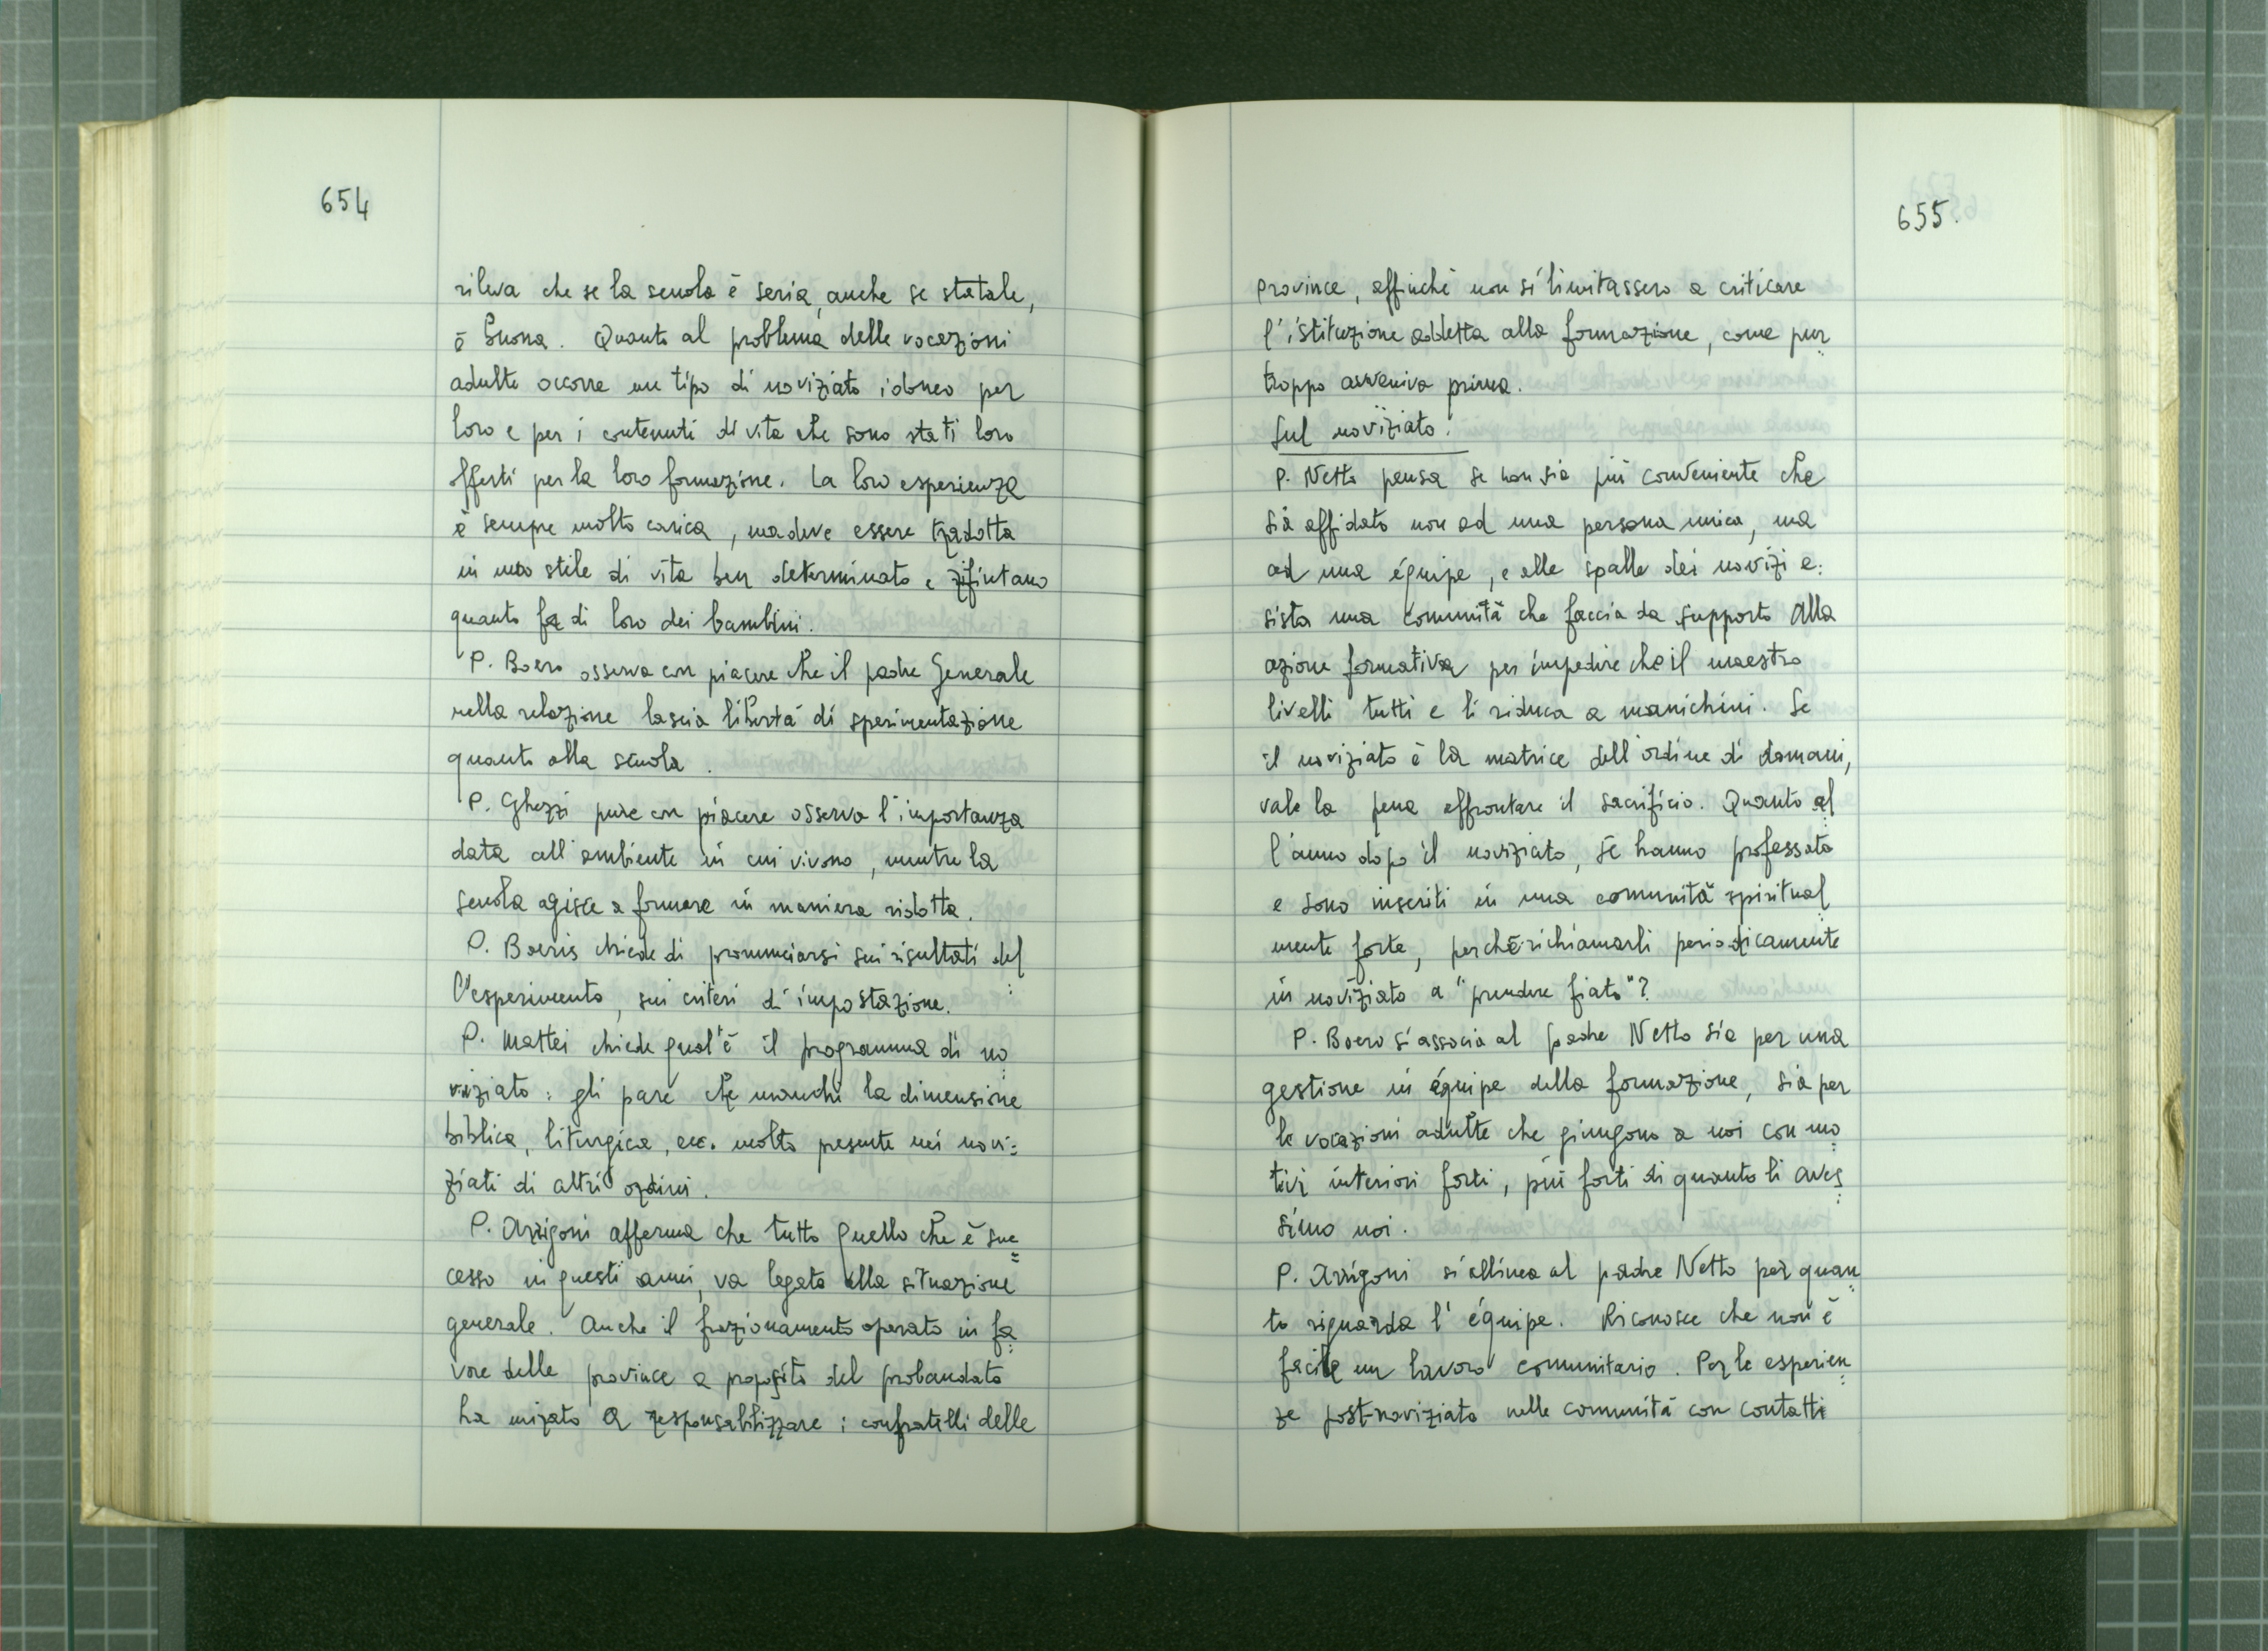 654
rileva che se la scuola è seria, anche se statale,
è buona. Quanto al problema delle vocazioni
adulte occorre un tipo di noviziato idoneo per
loro e per i contenuti di vita che sono stati loro
offerti per la loro formazione. La loro esperienza
è sempre molto carica, ma deve essere tradotta
in uno stile di vita ben determinato e rifiutano
quanto fa di loro dei bambini.
P. Boero osserva con piacere che il padre Generale
nella relazione lascia libertà di sperimentazione
quanto alla scuola.
P. Ghezzi pure con piacere osserva l'importanza
data all'ambiente in cui vivono, mentre la
scuola agisce a formare in maniera ridotta.
P. Boeris chiede di pronunciarsi sui risultati del
l'esperimento, sui criteri di impostazione.
P. Mattei chiede qual'è il programma di no
viziato: gli pare che manchi la dimensione
biblica, liturgica, ecc. molto presente nei novi=
ziati di altri ordini.
P. Arrigoni afferma che tutto quello che è suc
cesso in questi anni, va legato alla situazione
generale. Anche il frazionamento operato in fa
vore delle province a proposito del probandato
ha mirato a responsabilizzare i confratelli delle
655.
province, affinchè non si limitassero a criticare
l'istituzione addetta alla formazione, come pur
troppo avveniva prima.
Sul noviziato:
P. Netto pensa se non sia più conveniente che
sia affidato non ad una persona unica, ma
ad una équipe, e alle spalle dei novizi e=
sista una comunità che faccia da supporto alla
azione formativa per impedire che il maestro
livelli tutti e li riduca a manichini. Se
il noviziato è la matrice dell'ordine di domani,
vale la pena affrontare il sacrificio. Quanto al
l'anno dopo il noviziato, se hanno professato
e sono inseriti in una comunità spiritual
mente forte, perchè richiamarli periodicamente
in noviziato a "prendere fiato"?
P. Boero si associa al padre Netto sia per una
gestione in équipe della formazione, sia per
le vocazioni adulte che giungono a noi con mo
tivi interiori forti, più forti di quanto li aves
simo noi.
P. Arrigoni si allinea al padre Netto per quan
to riguarda l'équipe. Riconosce che non è
facile un lavoro comunitario. Per le esperien
ze post-noviziato nelle comunità con contatti